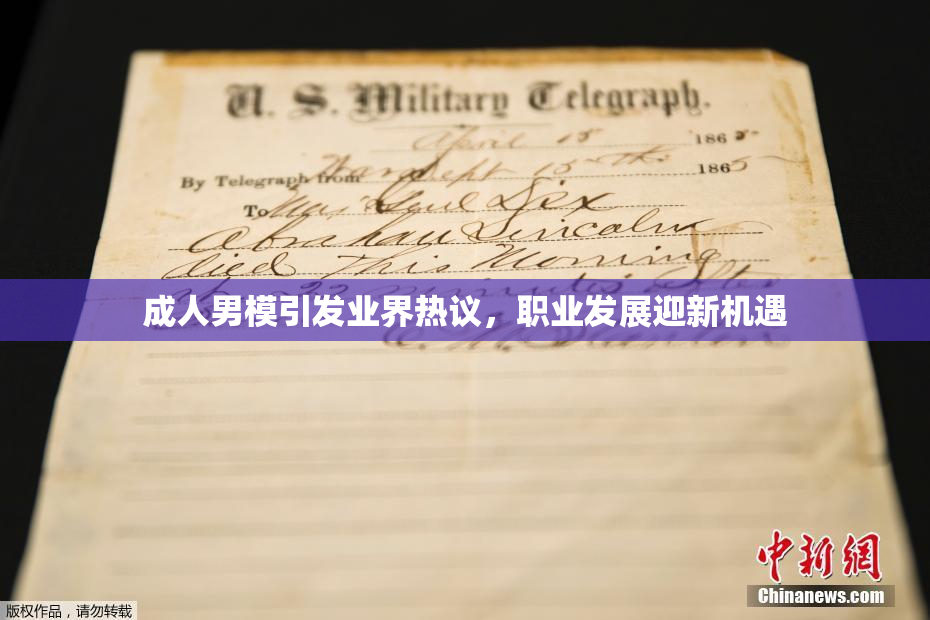 U. S. Military Telegraph.
April 15 1865
By Telegraph from War Dept 15th 1865
To Maj Genl Dix
Abraham Lincoln
died This Morning
22 minutes after
成人男模引发业界热议，职业发展迎新机遇
E. M. Stanton
中新网
Chinanews.com
版权作品，请勿转载